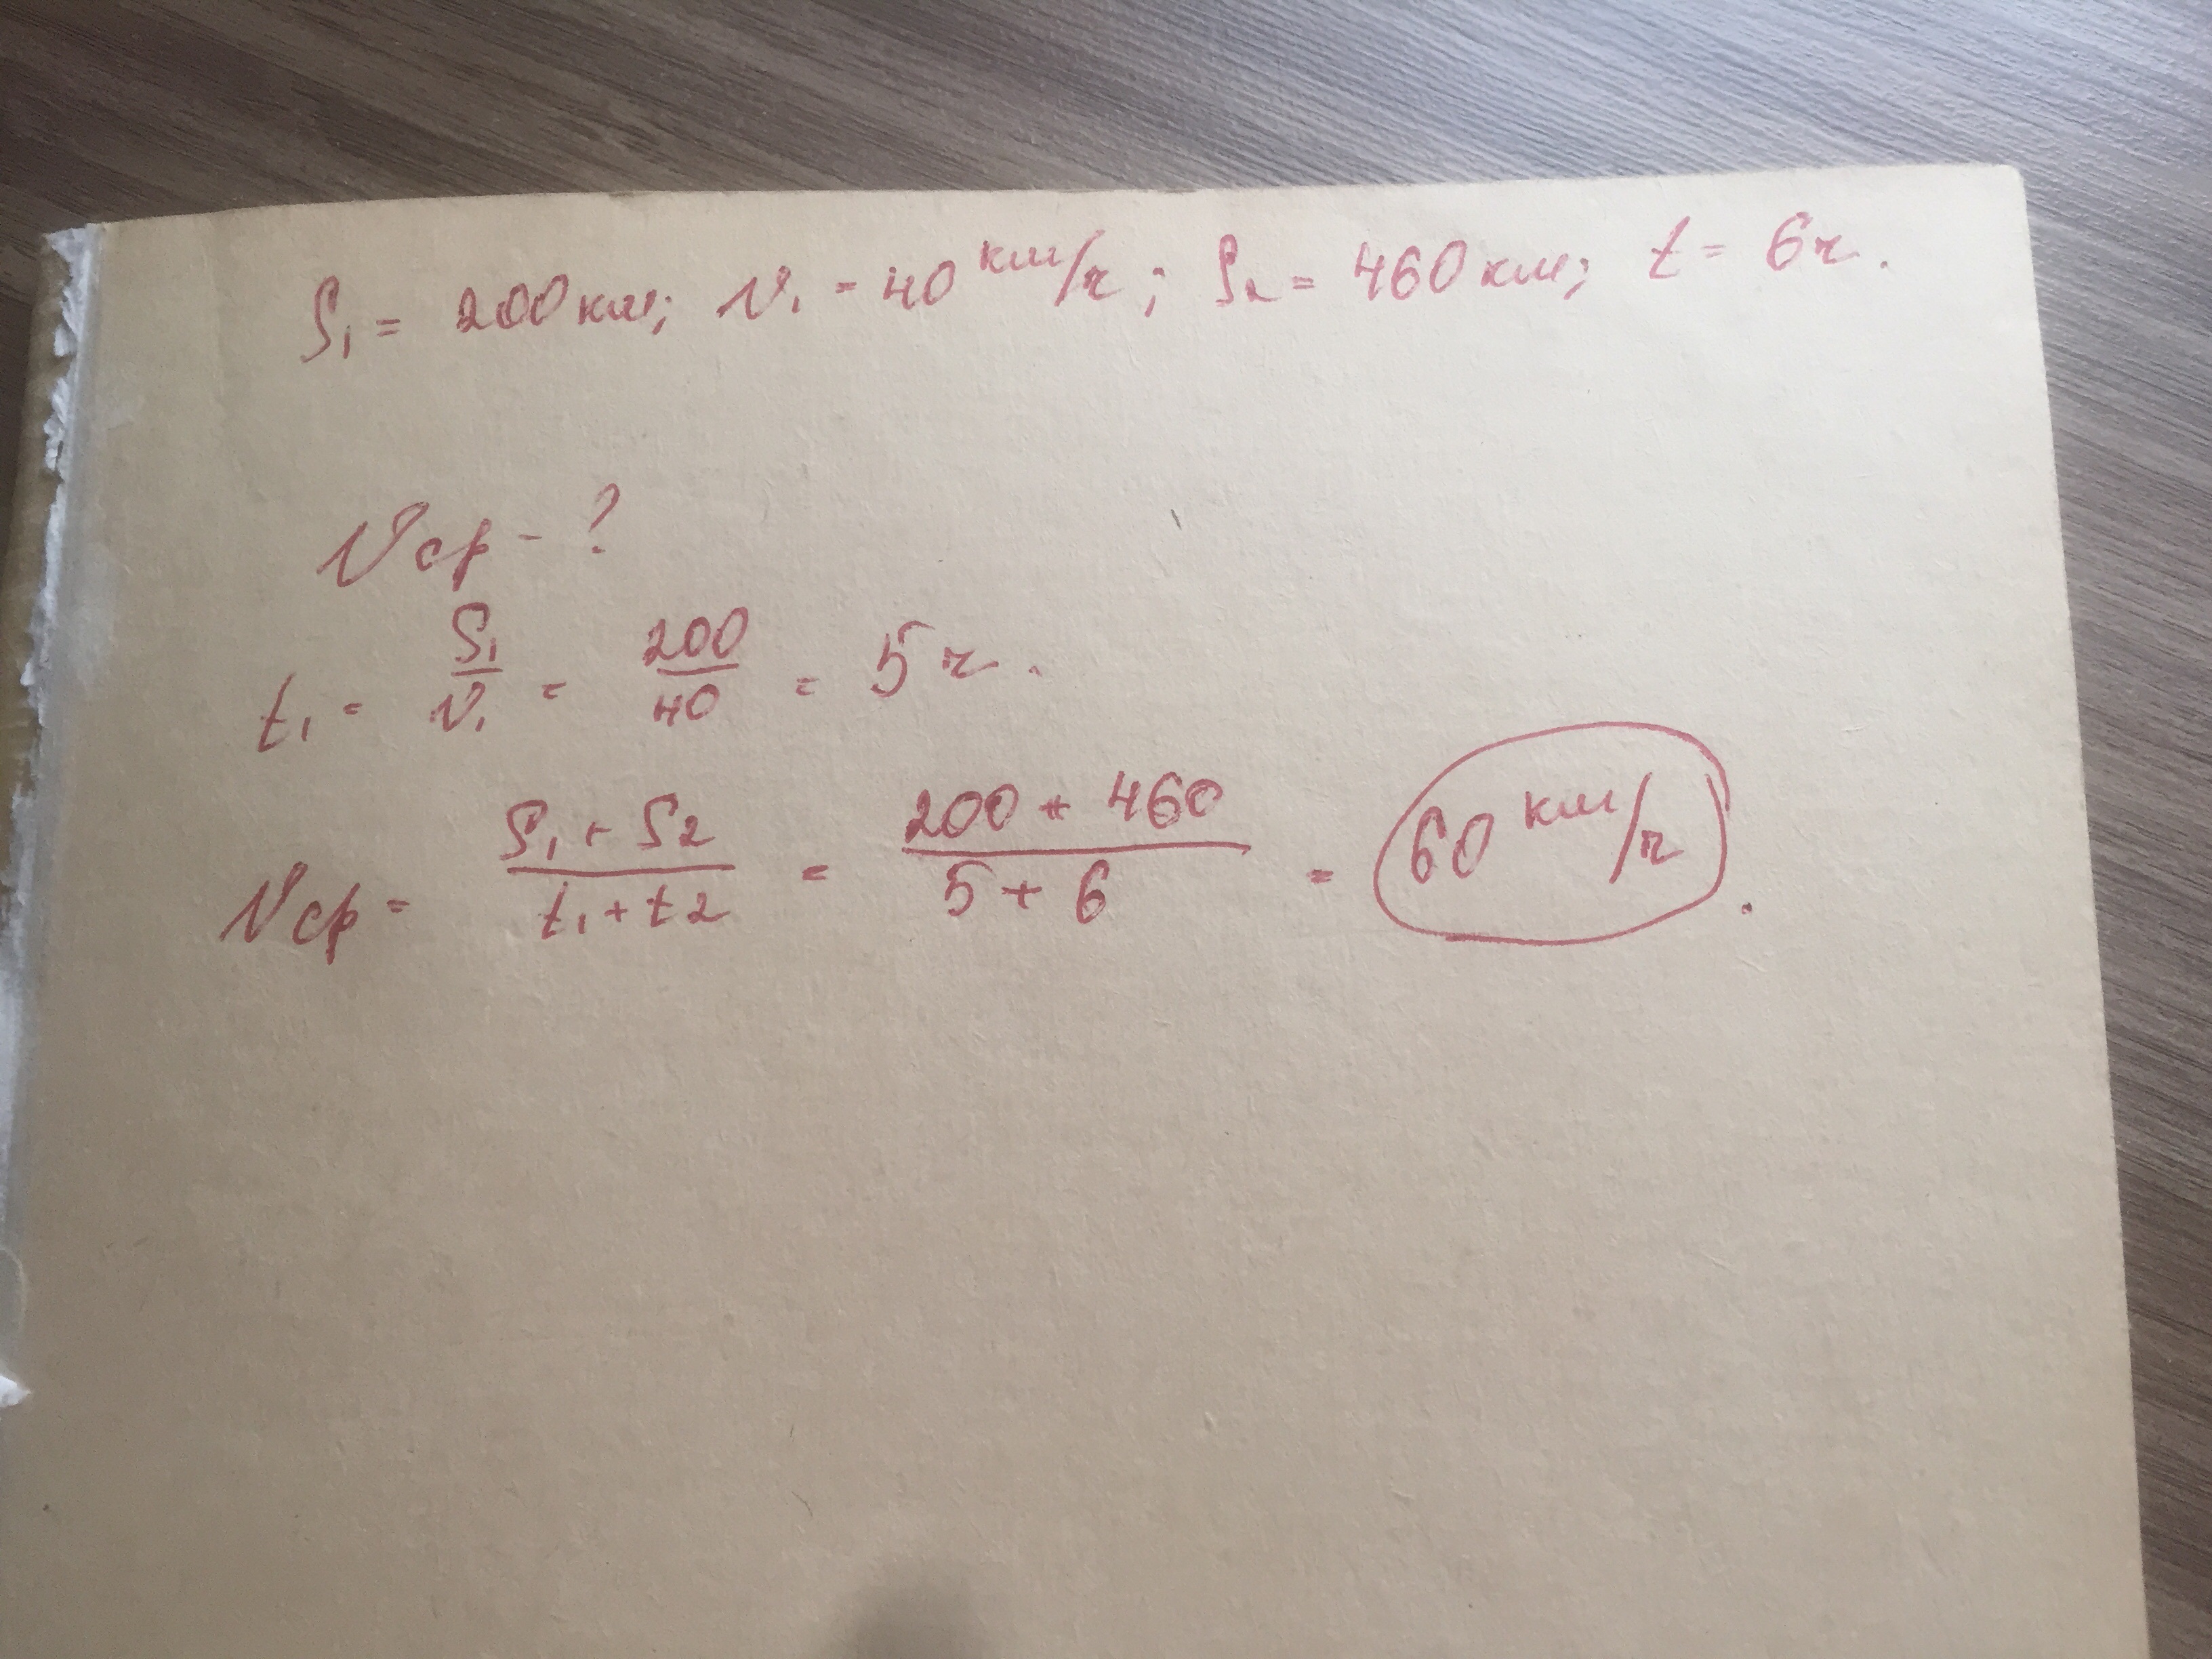 S₁ = 200 км; v₁ = 40 км/ч; S₂ = 460 км; t = 6 ч.
vср - ?
t₁ = S₁/v₁ = 200/40 = 5 ч.
vср = (S₁ + S₂)/(t₁ + t₂) = (200 + 460)/(5 + 6) = 60 км/ч.